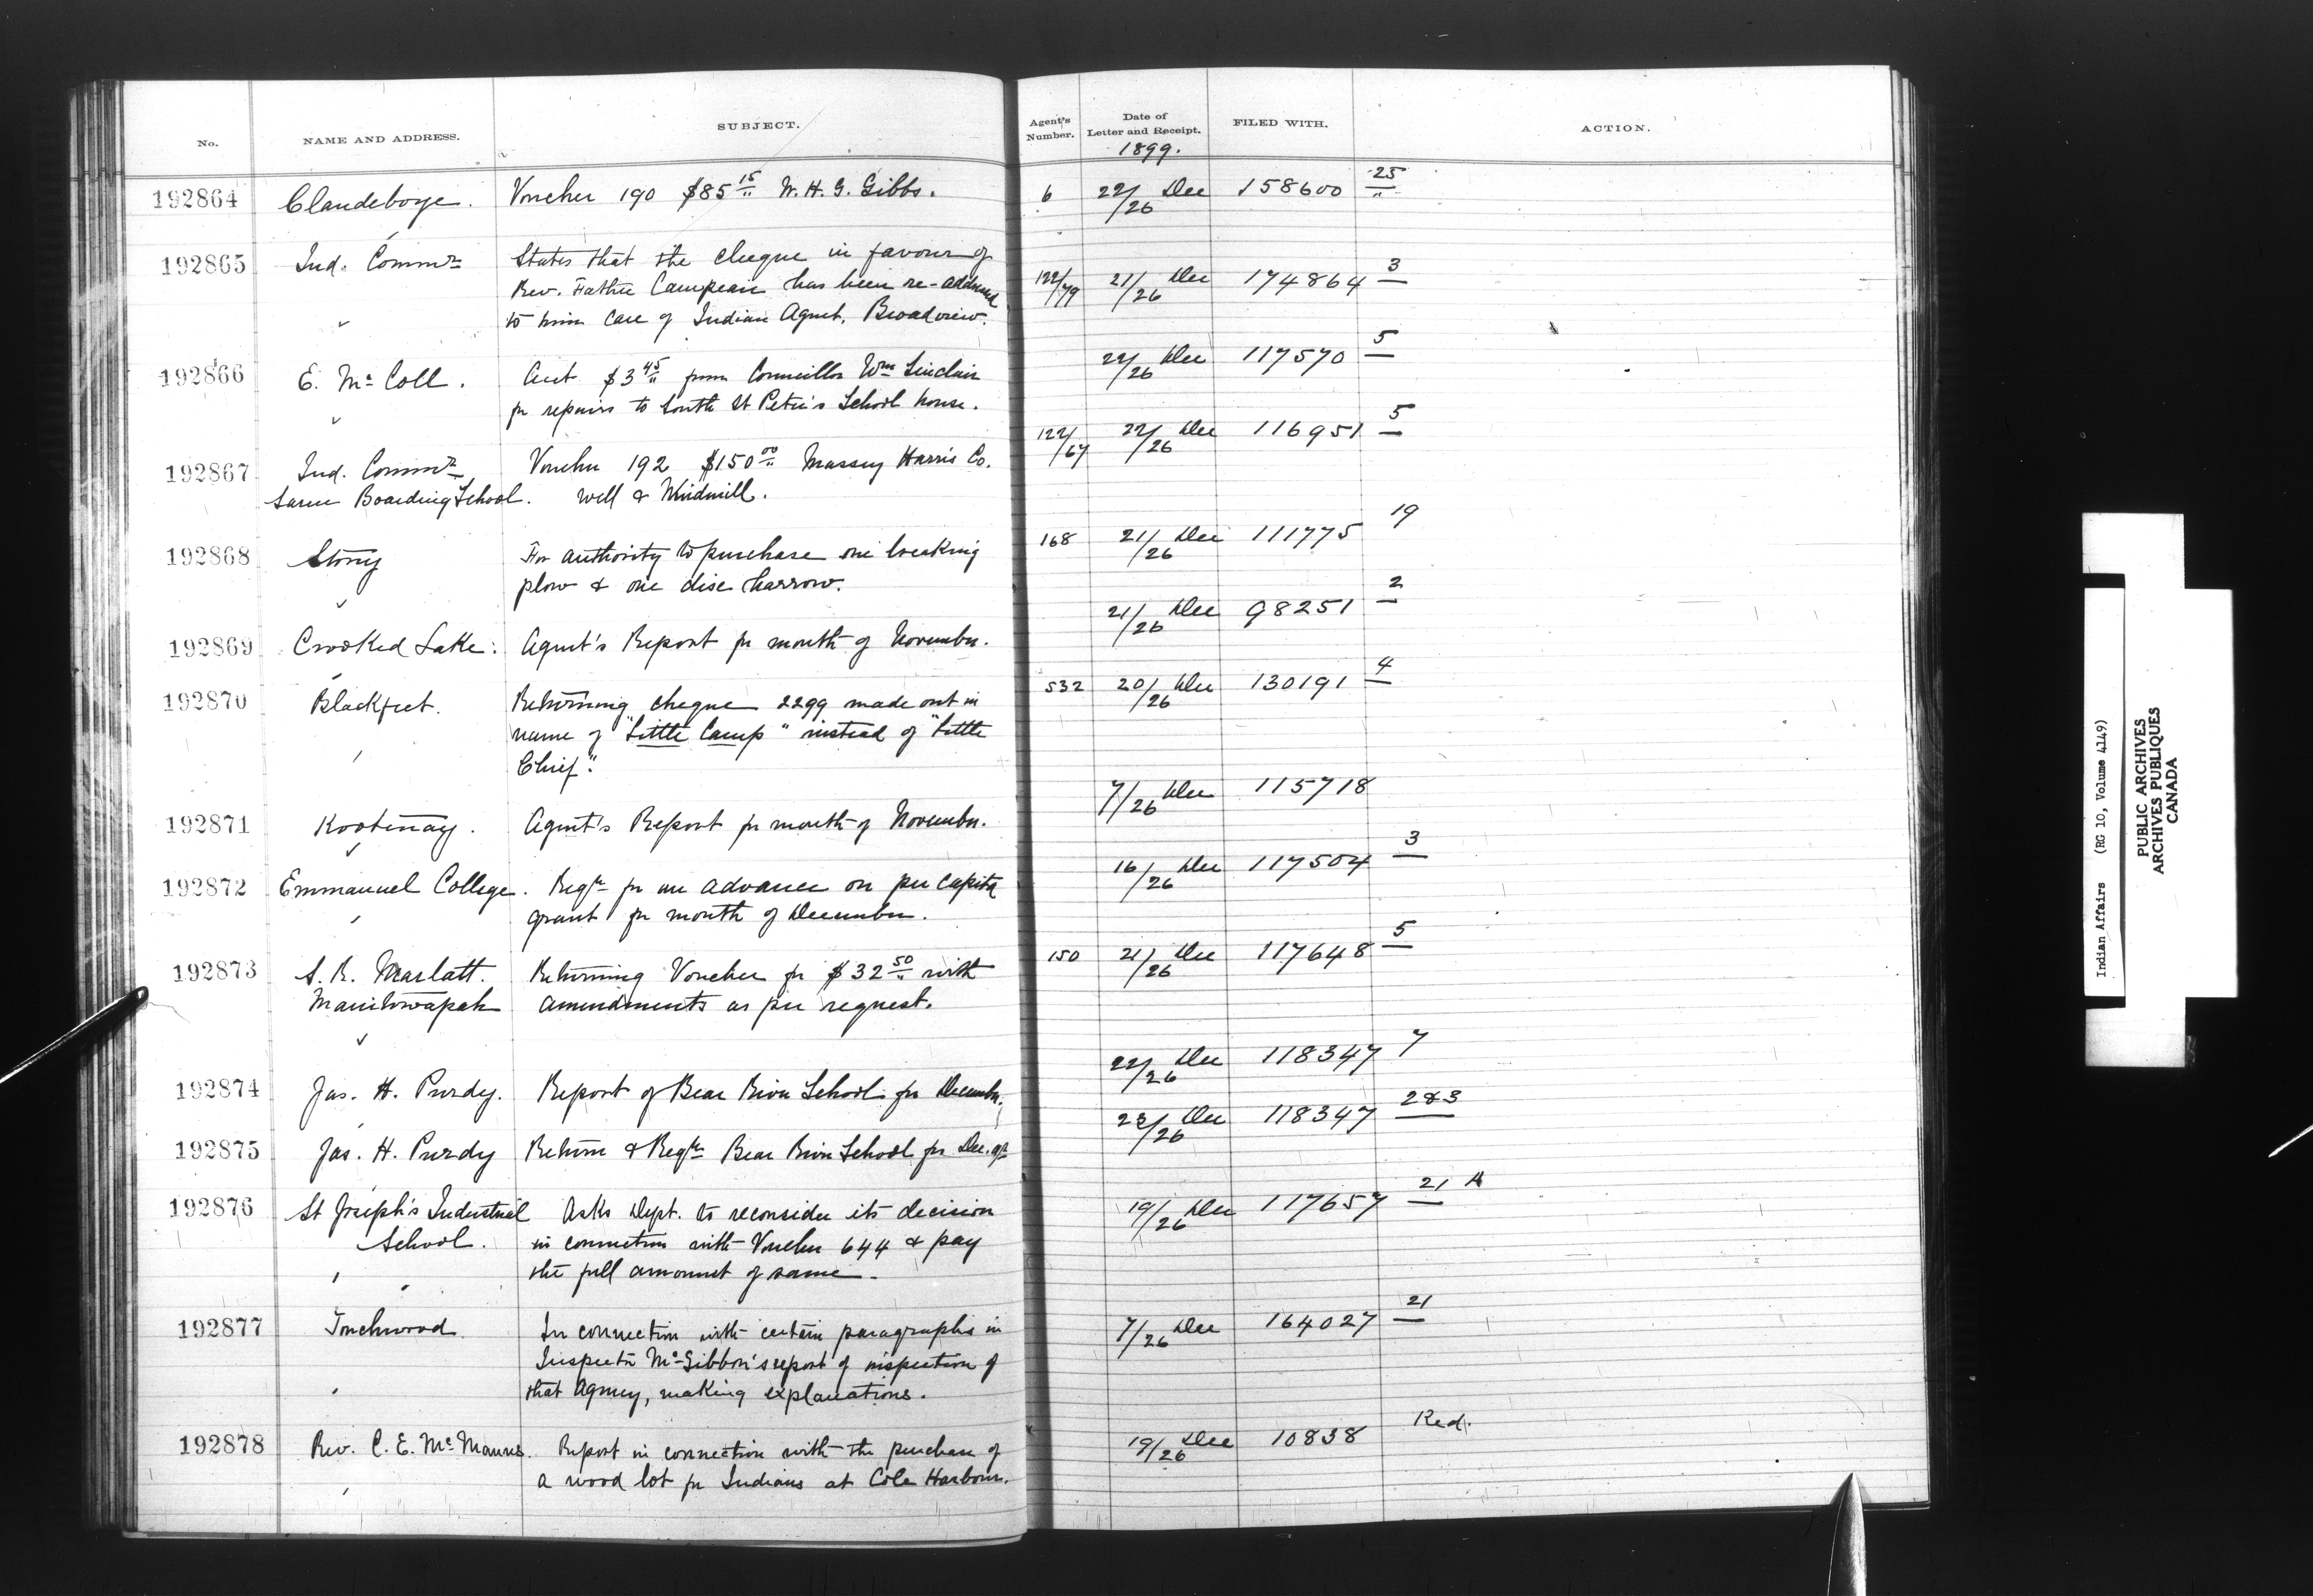 No. NAME AND ADDRESS. SUBJECT. Agent's Number. Date of Letter and Receipt. FILED WITH. ACTION.
1899.
192864 Clandeboye. Voucher 190 $85 15/" W. H. G. Gibbs. 6 22/26 Dec 158600 25
192865 Ind. Commr States that the cheque in favour of 122/79 21/26 Dec 174864 3
Rev. Father Campeau has been re-addressed
to him care of Indian Agent, Broadview.
192866 E. McColl. Acct $3 45/" from Councillor Wm Sinclair 22/26 Dec 117570 5
for repairs to South St Peter's School house.
192867 Ind. Commr Voucher 192 $150 00/" Massey Harris Co. 122/67 22/26 Dec 116951 5
Sarcee Boarding School. Well & Windmill.
192868 Stony For authority to purchase one breaking 168 21/26 Dec 111775 19
plow & one disc harrow.
192869 Crooked Lake. Agent's Report for month of November. 21/26 Dec 98251 2
192870 Blackfeet. Returning cheque 2299 made out in 532 20/26 Dec 130191 4
name of "Little Camp" instead of "Little
Chief".
192871 Kootenay. Agent's Report for month of November. 7/26 Dec 115718
192872 Emmanuel College. Reqtn for an advance on per capita 16/26 Dec 117504 3
grant for month of December.
192873 S. R. Marlatt. Returning Voucher for $32 50/" with 150 21/26 Dec 117648 5
Manitowapah amendments as per request.
192874 Jas. H. Purdy. Report of Bear River School for December. 22/26 Dec 118347 7
192875 Jas. H. Purdy Return & Reqtn Bear River School for Dec. qr 23/26 Dec 118347 2&3
192876 St Joseph's Industrial Asks Dept. to reconsider its decision 19/26 Dec 117657 21 A
School. in connection with Voucher 644 & pay
the full amount of same.
192877 Touchwood. In connection with certain paragraphs in 7/26 Dec 164027 21
Inspector McGibbon's report of inspection of
that Agency, making explanations.
192878 Rev. C. E. McManus. Report in connection with the purchase of 19/26 Dec 10838 Red.
a wood lot for Indians at Cole Harbour.
Indian Affairs (RG 10, Volume 4149)
PUBLIC ARCHIVES
ARCHIVES PUBLIQUES
CANADA